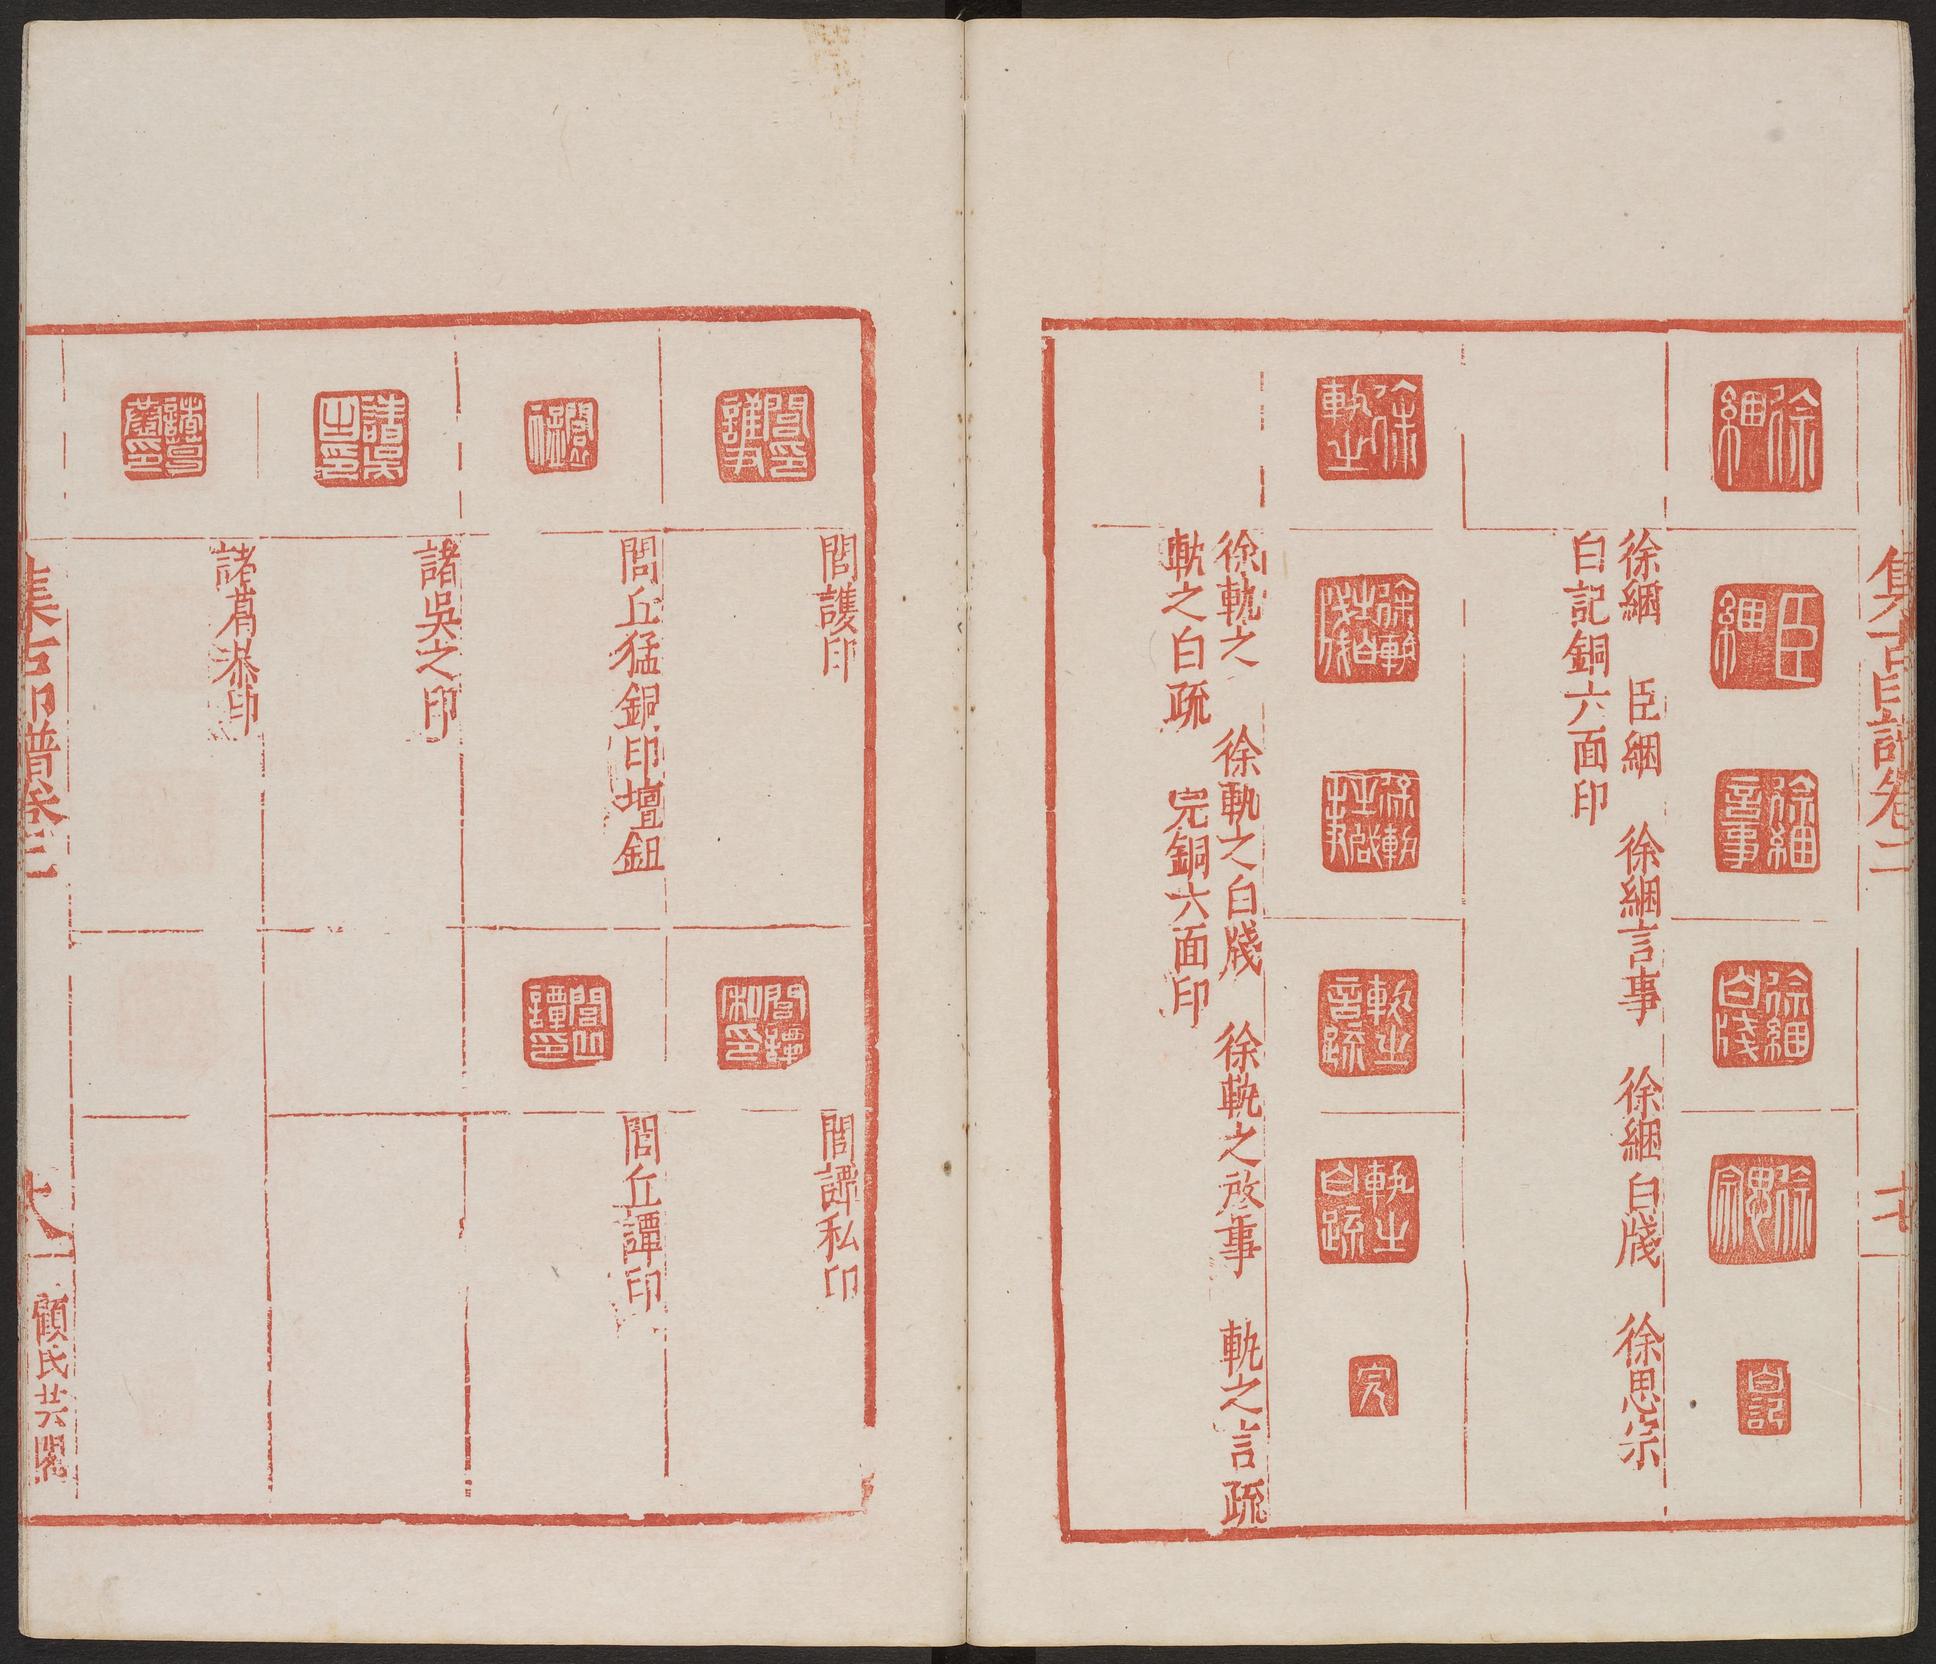 集古印譜卷二
七
徐綑　臣綑　徐綑言事　徐綑白牋　徐思宗
白記銅六面印
徐軌之　徐軌之白牋　徐軌之啟事　軌之言疏
軌之白疏　完銅六面印
閭護印
閭譚私印
閭丘猛銅印壇鈕
閭丘譚印
諸吳之印
諸葛恭印
集古印譜卷二
八
顧氏芸閣